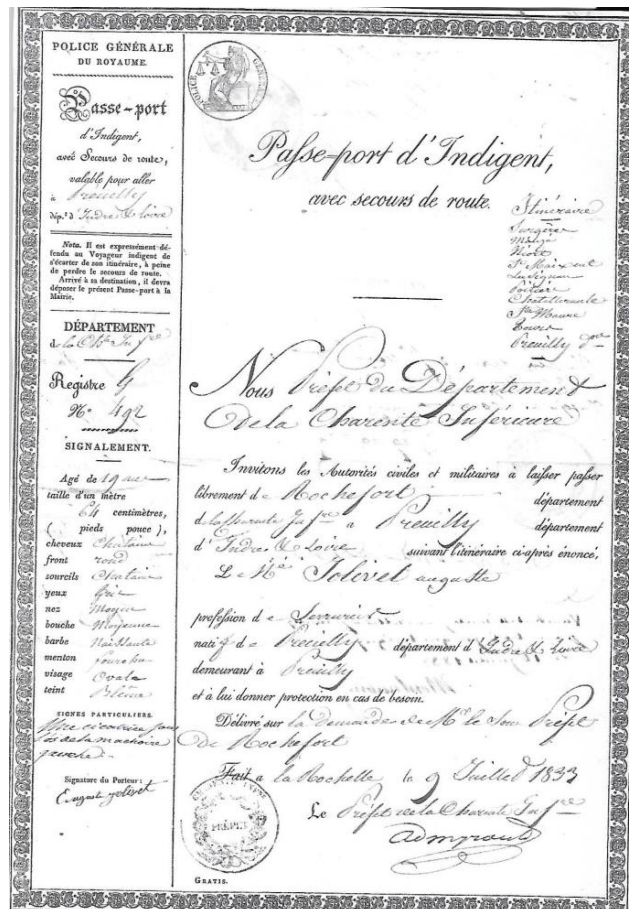 POLICE GÉNÉRALE
DU ROYAUME.
Passe-port
d'Indigent,
avec Secours de route,
valable pour aller
à Preuilly
dép.t d'Indre & Loire
Nota. Il est expressément dé-
fendu au Voyageur indigent de
s'écarter de son itinéraire, à peine
de perdre le secours de route.
Arrivé à sa destination, il devra
déposer le présent Passe-port à la
Mairie.
DÉPARTEMENT
de la Ch.te Inf.re
Registre G
N.o 492
SIGNALEMENT.
Agé de 19 ans
taille d'un mètre
64 centimètres,
( pieds pouce ),
cheveux Chatains
front rond
sourcils Chatain
yeux Gris
nez Moyen
bouche Moyenne
barbe Naissante
menton fourchu
visage Ovale
teint Blême
SIGNES PARTICULIERS.
Une cicatrice sous
l'os de la machoire
gauche
Signature du Porteur :
Auguste Jolivet
POLICE GÉNÉRALE
Passe-port d'Indigent,
avec secours de route.
Itinéraire
Surgères
Mauzé
Niort
St Maixent
Lusignan
Poitiers
Chatellerault
Ste Maure
Tours
Preuilly
Nous Préfet du Département
de la Charente Inférieure
Invitons les Autorités civiles et militaires à laisser passer
librement de Rochefort département
de la Charente Inf.re à Preuilly département
d'Indre & Loire suivant l'itinéraire ci-après énoncé,
Le Né Jolivet auguste
profession de Serrurier
natif de Preuilly département d'Indre & Loire
demeurant à Preuilly
et à lui donner protection en cas de besoin.
Délivré sur la demande de Mr le Sous Préfet
de Rochefort
Fait à la Rochelle le 9 Juillet 1833
Le Préfet de la Charente Inf.re
Admyrault
PRÉFET
GRATIS.